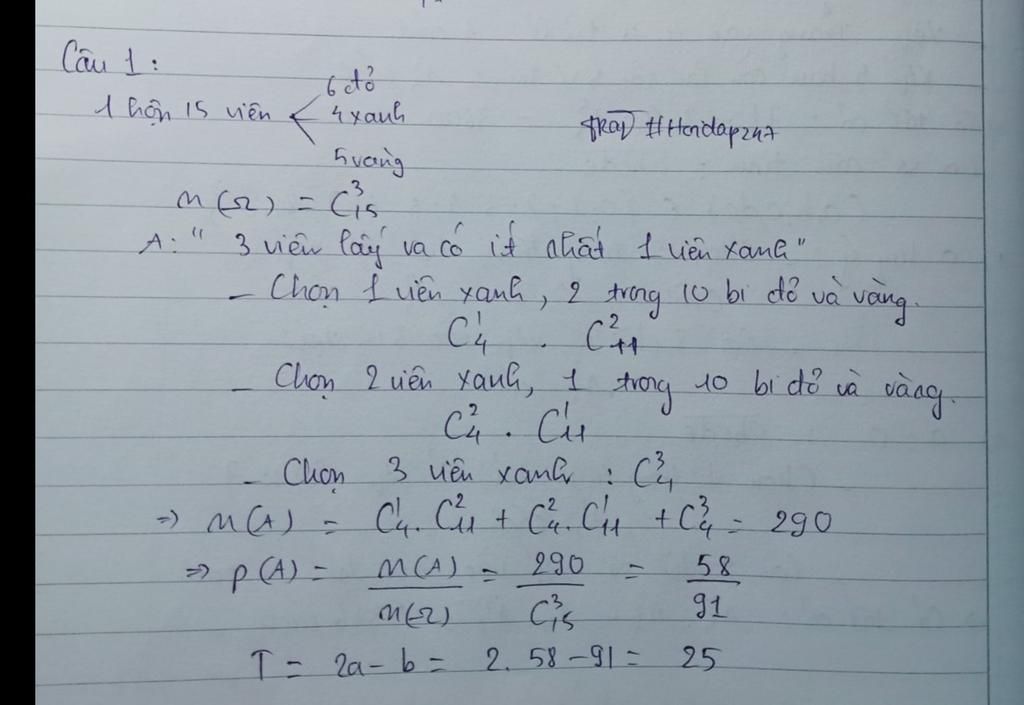 Câu 1:
6 đỏ
1 hộp 15 viên < 4 xanh
5 vàng
#Hoidap247
n(Ω) = C³₁₅
A: " 3 viên lấy ra có ít nhất 1 viên xanh"
- Chọn 1 viên xanh, 2 trong 10 bi đỏ và vàng.
C¹₄ . C²₁₁
- Chọn 2 viên xanh, 1 trong 10 bi đỏ và vàng.
C²₄ . C¹₁₁
- Chọn 3 viên xanh : C³₄
⇒ n(A) = C¹₄. C²₁₁ + C²₄. C¹₁₁ + C³₄ = 290
⇒ p(A) = n(A)/n(Ω) = 290/C³₁₅ = 58/91
T = 2a - b = 2. 58 - 91 = 25